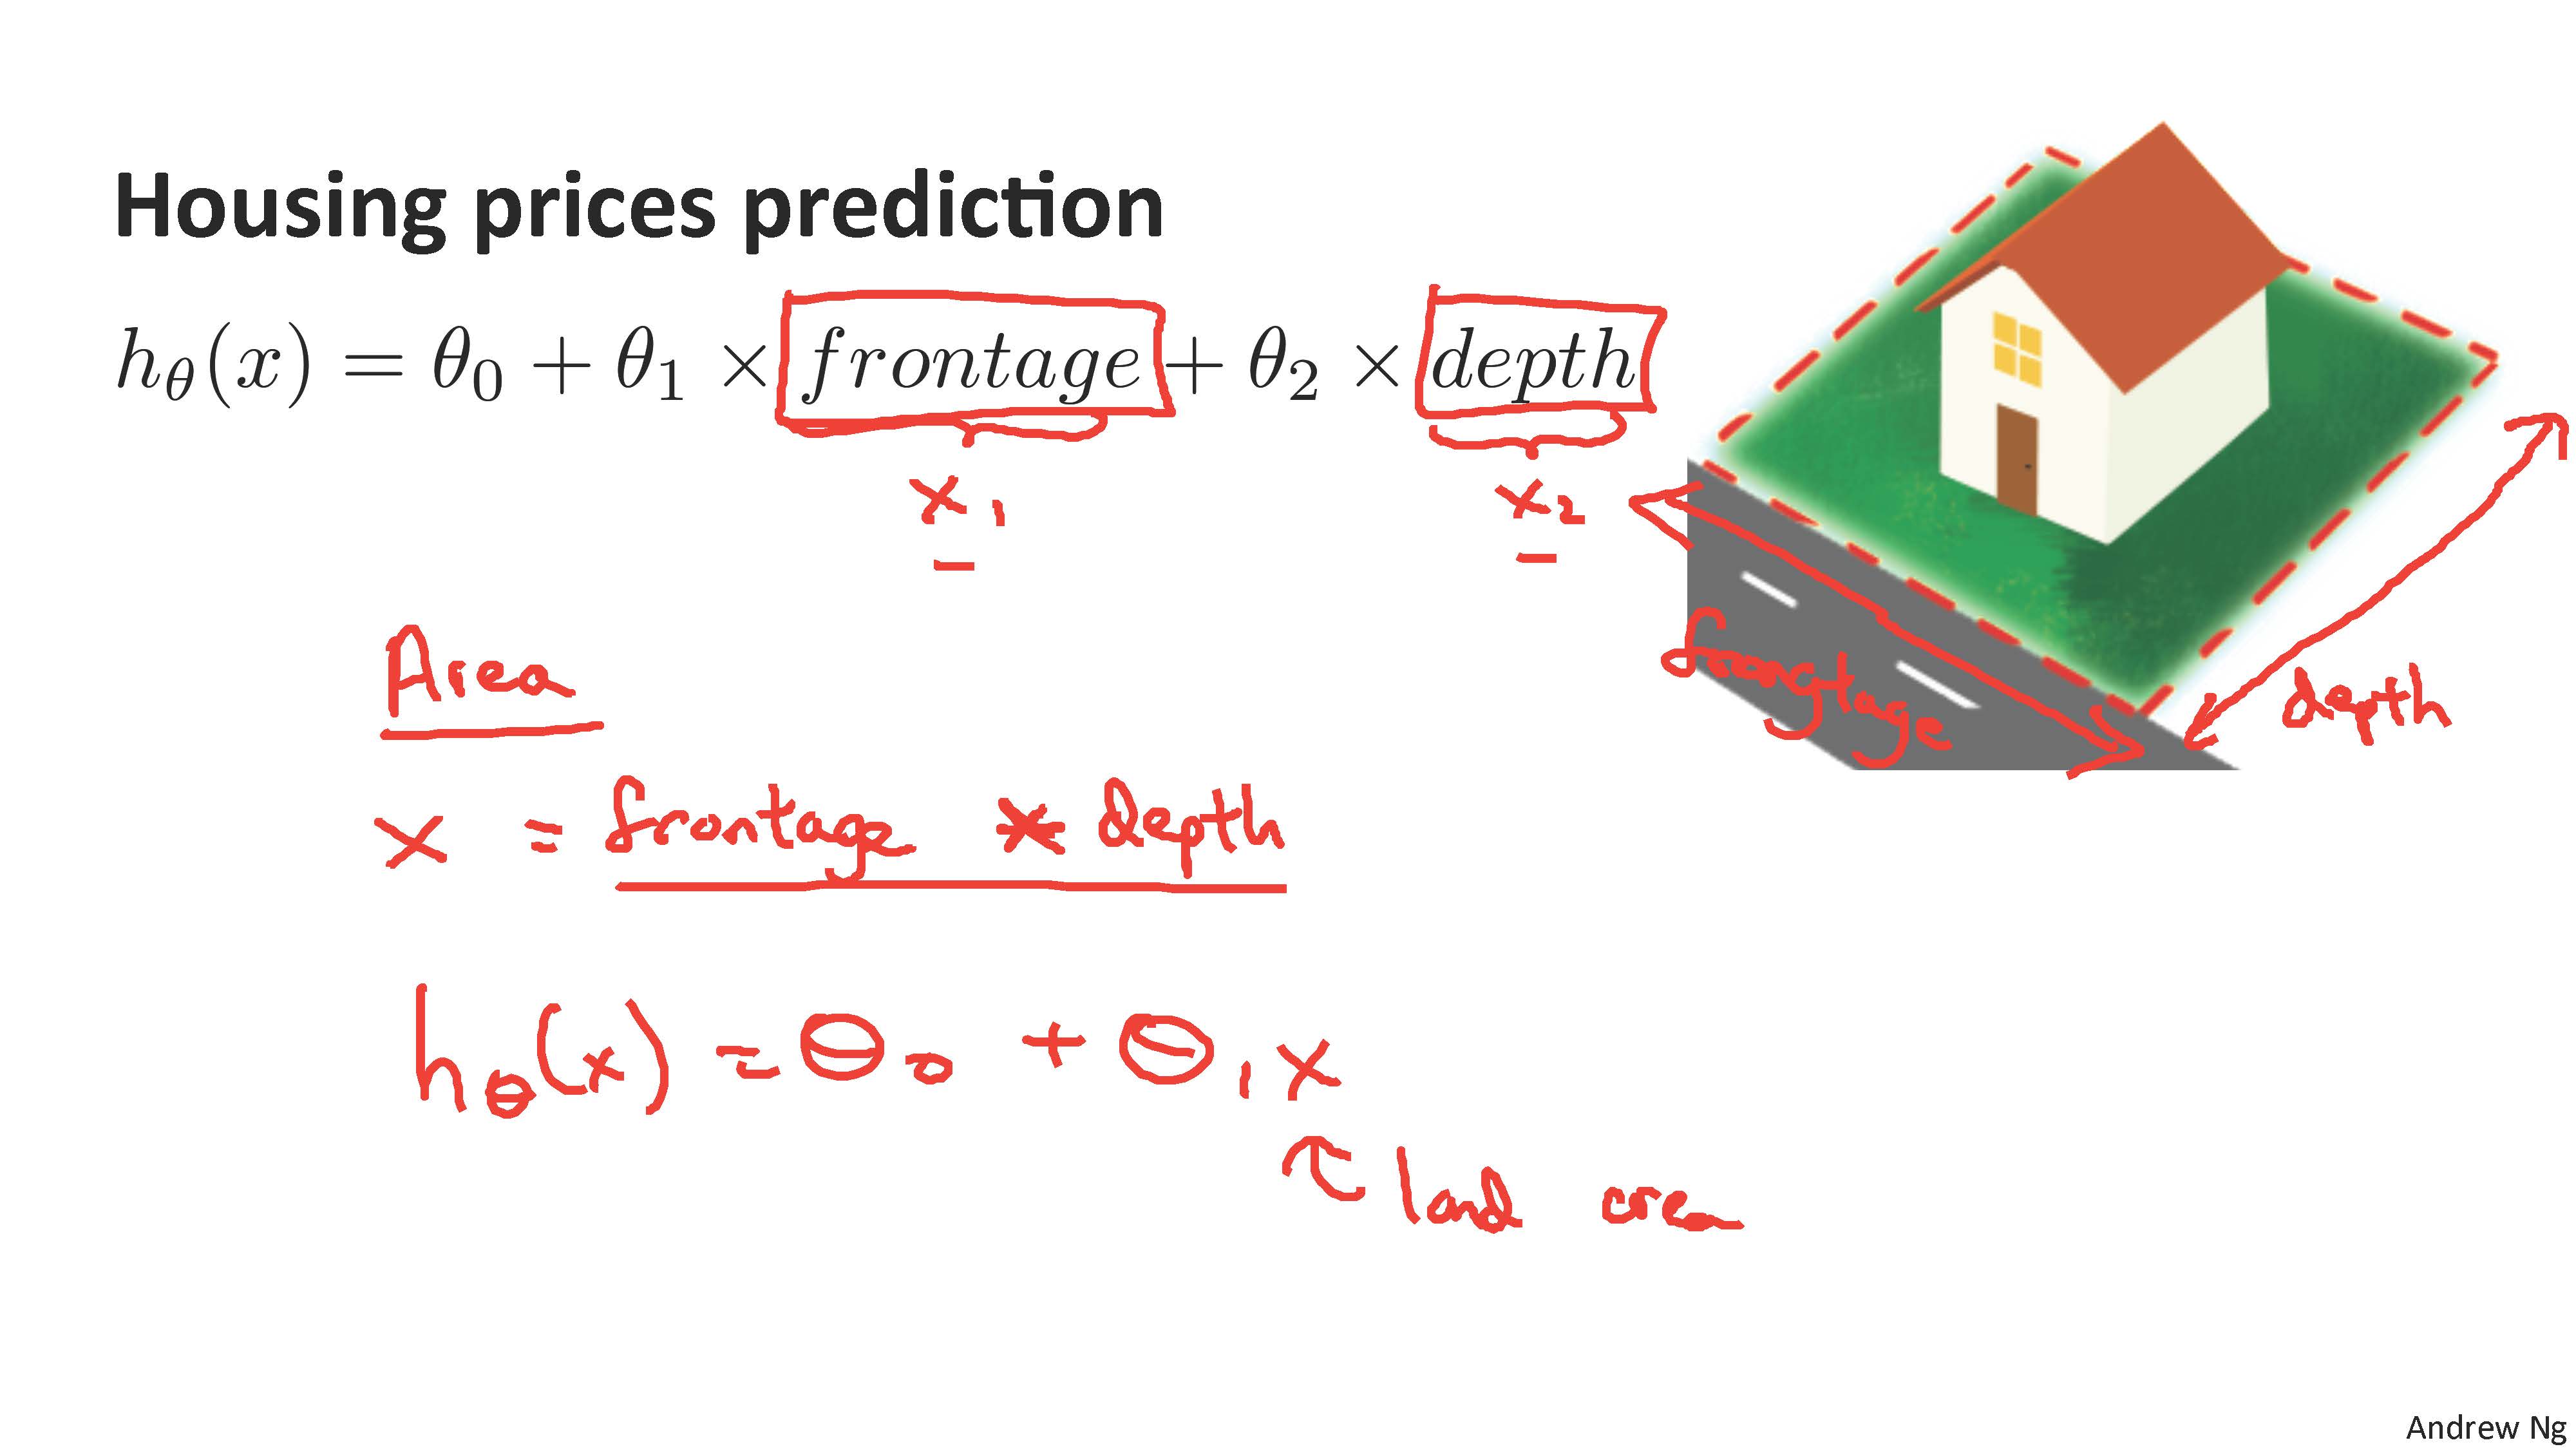 Housing prices prediction
hθ(x) = θ0 + θ1 × frontage + θ2 × depth
x1
x2
frongtage
depth
Area
x = frontage * depth
hθ(x) = θ0 + θ1x
land area
Andrew Ng